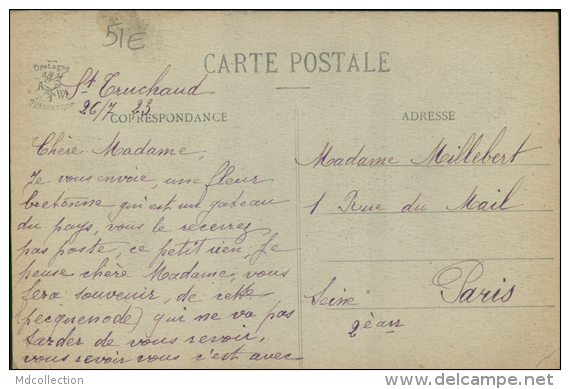 51E
CARTE POSTALE
Bretagne
Pittoresque
St Truchaud
26/7 23
CORRESPONDANCE
ADRESSE
Chère Madame,
Je vous envoie, une fleur
bretonne qui est un gateau
du pays, vous le recevrez
pas poste, ce petit rien, Je
pense chère Madame, vous
fera souvenir, de cette
(pecquenode) qui ne va pas
tarder de vous revoir,
vous revoir vous c'est avec
Madame Millebert
1 Rue du Mail
Paris
Seine
2èarr
Mdcollection
www.delcampe.net